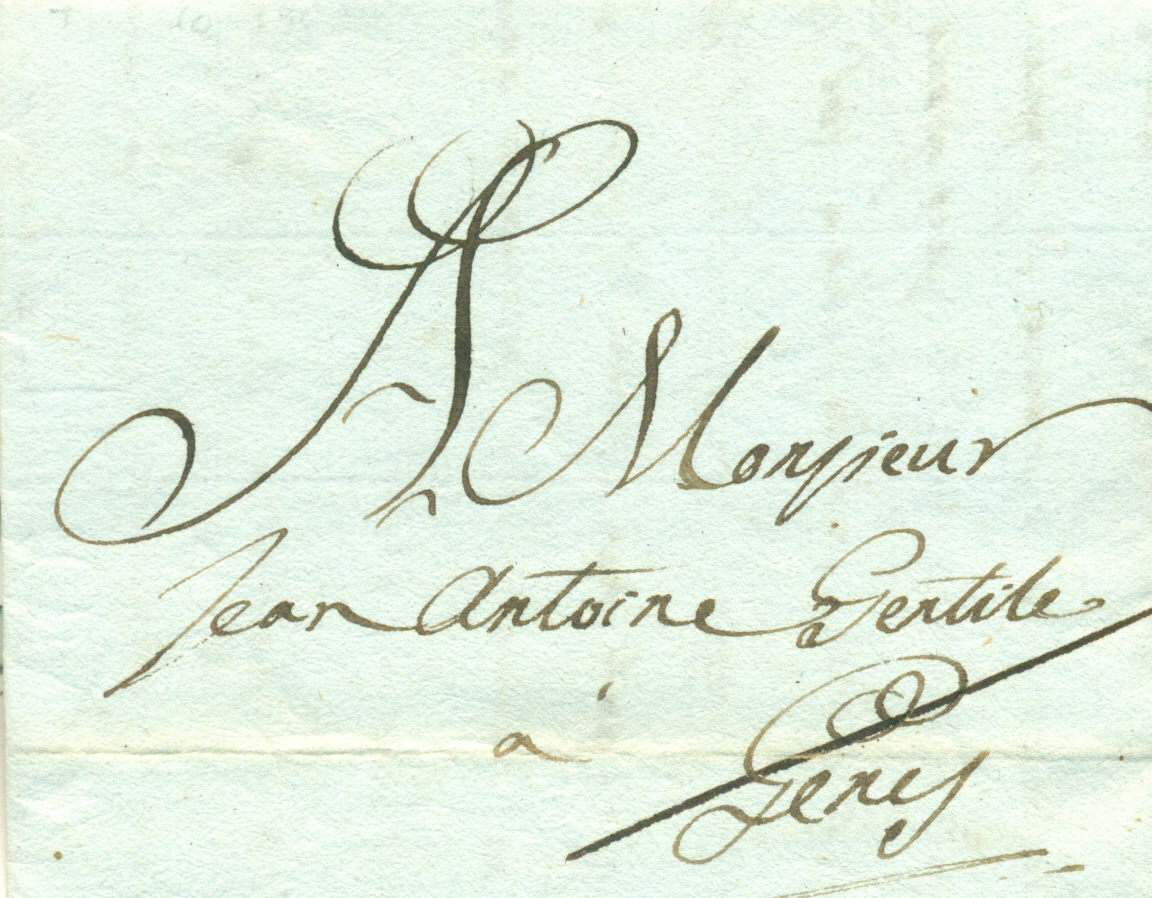 A Monsieur
Jean Antoine Gentile
à
Genes